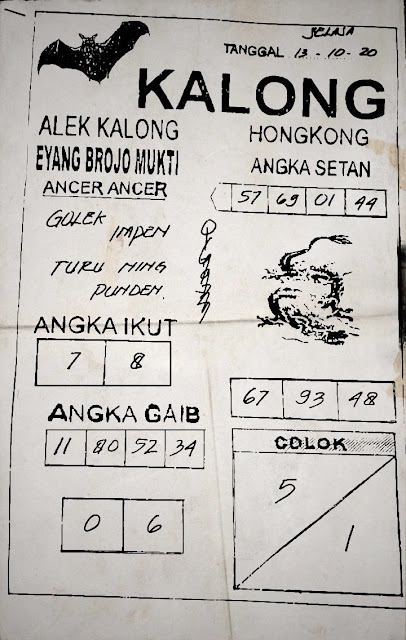 SELASA
TANGGAL 13-10-20
KALONG
ALEK KALONG
EYANG BROJO MUKTI
ANCER ANCER
GOLEK
IMPEN
TURU NING
PUNDEN.
HONGKONG
ANGKA SETAN
57 69 01 44
ANGKA IKUT
7 8
67 93 48
ANGKA GAIB
11 80 52 34
0 6
COLOK
5
1